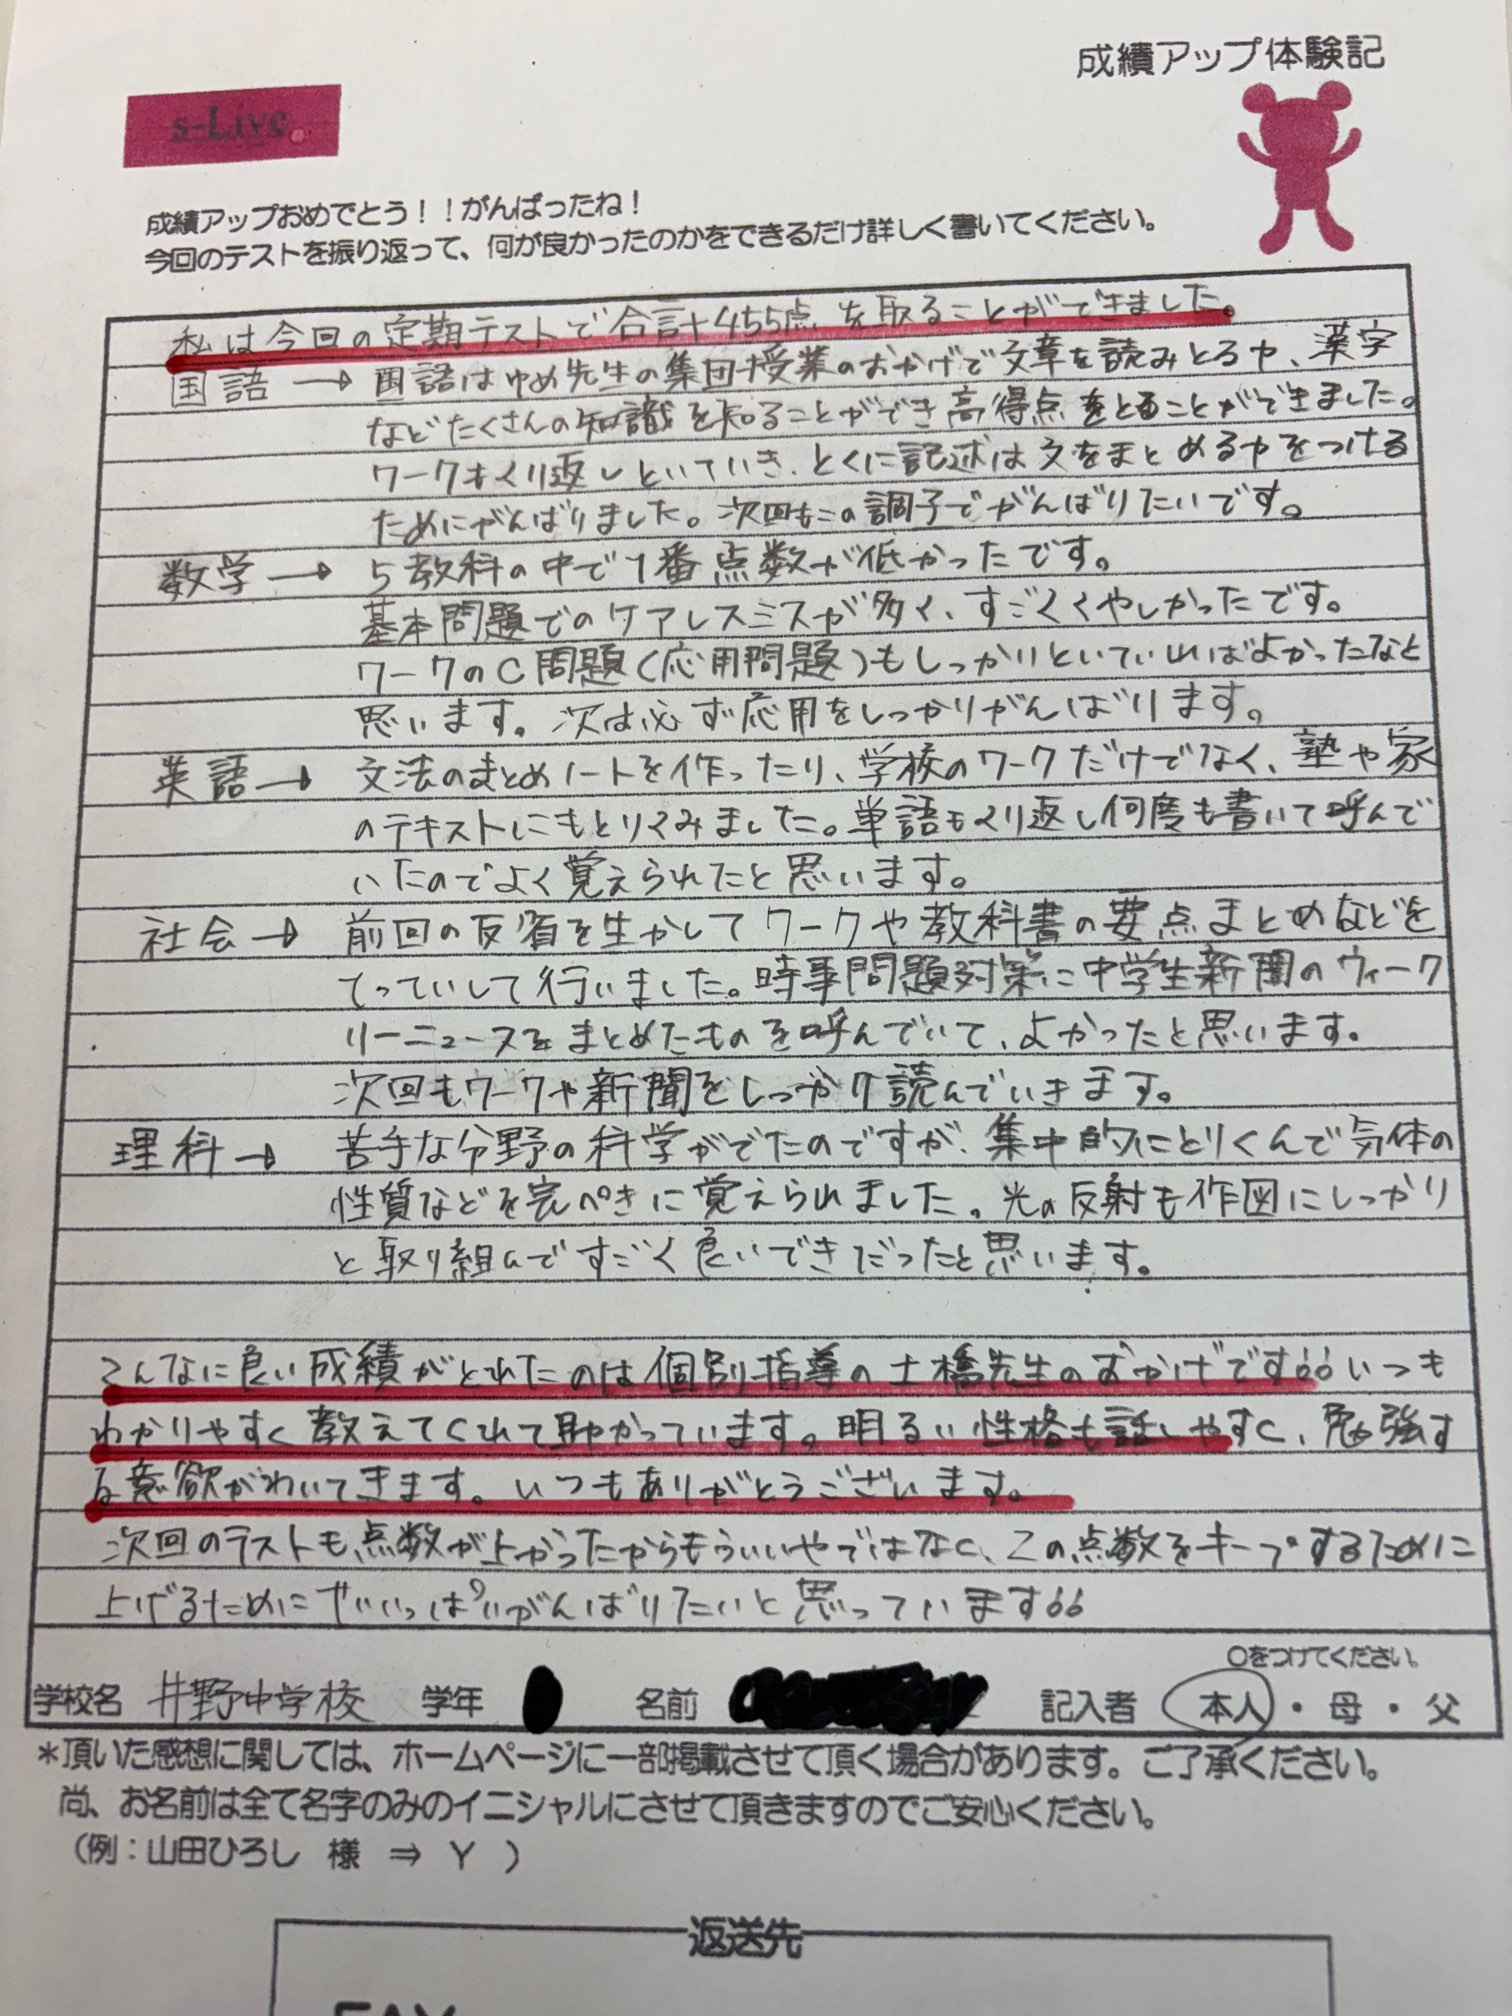 成績アップ体験記
s-Live.
成績アップおめでとう！！がんばったね！
今回のテストを振り返って、何が良かったのかをできるだけ詳しく書いてください。
私は今回の定期テストで合計455点を取ることができました。
国語 → 国語はゆめ先生の集団授業のおかげで文章を読みとる力、漢字
などたくさんの知識を知ることができ高得点をとることができました。
ワークもくり返しといていき、とくに記述は文をまとめる力をつける
ためにがんばりました。次回もこの調子でがんばりたいです。
数学 → 5教科の中で1番点数が低かったです。
基本問題でのケアレスミスが多く、すごくくやしかったです。
ワークのC問題(応用問題)もしっかりといていればよかったなと
思います。次は必ず応用をしっかりがんばります。
英語 → 文法のまとめノートを作ったり、学校のワークだけでなく、塾や家
のテキストにもとりくみました。単語もくり返し何度も書いて呼んで
いたのでよく覚えられたと思います。
社会 → 前回の反省を生かしてワークや教科書の要点まとめなどを
てっていして行いました。時事問題対策に中学生新聞のウィーク
リーニュースをまとめたものを呼んでいて、よかったと思います。
次回もワークや新聞をしっかり読んでいきます。
理科 → 苦手な分野の科学がでたのですが、集中的にとりくんで気体の
性質などを完ぺきに覚えられました。光の反射も作図にしっかり
と取り組んですごく良いできだったと思います。
こんなに良い成績がとれたのは個別指導の土橋先生のおかげです。。いつも
わかりやすく教えてくれて助かっています。明るい性格も話しやすく、勉強す
る意欲がわいてきます。いつもありがとうございます。
次回のテストも点数が上がったからもういいやではなく、この点数をキープするために
上げるためにせいいっぱいがんばりたいと思っています。。
○をつけてください。
学校名 井野中学校 学年 名前 記入者 本人・母・父
*頂いた感想に関しては、ホームページに一部掲載させて頂く場合があります。ご了承ください。
尚、お名前は全て名字のみのイニシャルにさせて頂きますのでご安心ください。
(例：山田ひろし 様 ⇒ Y )
返送先